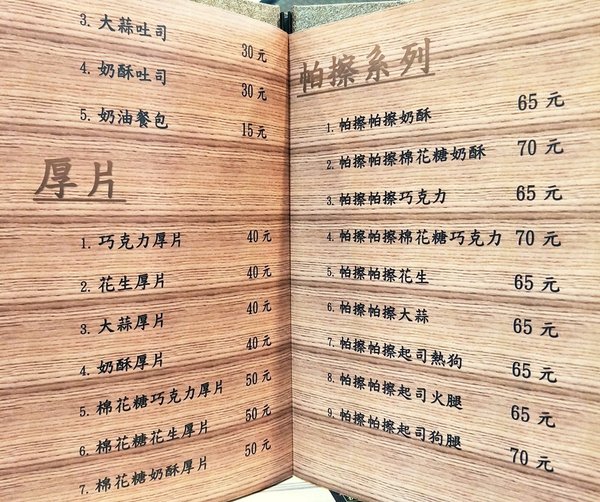 3. 大蒜吐司 30元
4. 奶酥吐司 30元
5. 奶油餐包 15元
厚片
1. 巧克力厚片 40元
2. 花生厚片 40元
3. 大蒜厚片 40元
4. 奶酥厚片 40元
5. 棉花糖巧克力厚片 50元
6. 棉花糖花生厚片 50元
7. 棉花糖奶酥厚片 50元
帕擦系列
1. 帕擦帕擦奶酥 65元
2. 帕擦帕擦棉花糖奶酥 70元
3. 帕擦帕擦巧克力 65元
4. 帕擦帕擦棉花糖巧克力 70元
5. 帕擦帕擦花生 65元
6. 帕擦帕擦大蒜 65元
7. 帕擦帕擦起司熱狗 65元
8. 帕擦帕擦起司火腿 65元
9. 帕擦帕擦起司狗腿 70元